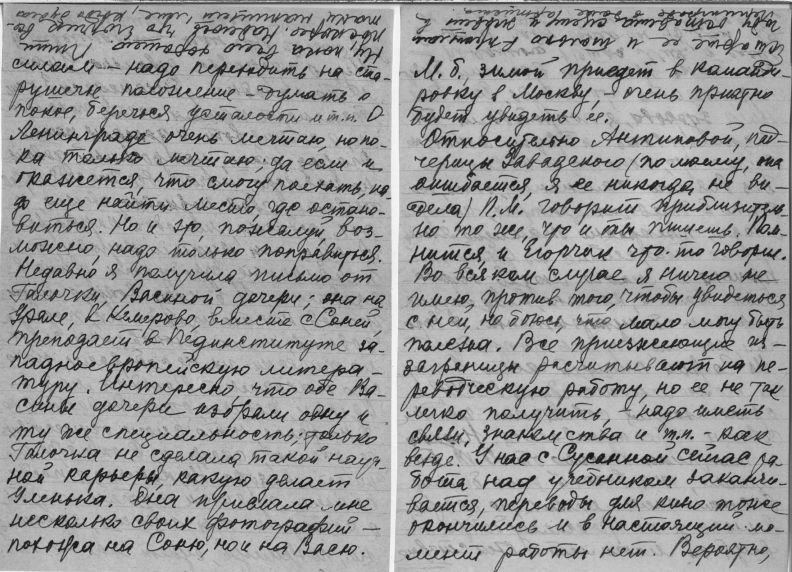 силам – надо переходить на ста-
рушечье положение – думать о
покое, беречься усталости и т.п. О
Ленинграде очень мечтаю, но по-
ка только мечтаю; да если и
окажется, что смогу поехать, на-
до еще найти место, где остано-
виться. Но и это, пожалуй, воз-
можно, надо только поправиться.
Недавно я получила письмо от
Галочки, Васиной дочери; она на
Урале, в Кемерово, вместе с Соней,
преподает в Пединституте за-
падноевропейскую литера-
туру. Интересно что обе Ва-
сины дочери избрали одну и
ту же специальность; только
Галочка не сделала такой науч-
ной карьеры, какую делает
Уленька. Она прислала мне
несколько своих фотографий –
похожа на Соню, но и на Васю.
М.б., зимой приедет в команди-
ровку в Москву, – очень приятно
будет увидеть ее.
Относительно Антиповой, пад-
черицы Завадского (по моему, она
ошибается, я ее никогда не ви-
дела) П.М. говорит приблизитель-
но то же, что и ты пишешь. Пом-
нится, и Егорчик что-то говорил.
Во всяком случае я ничего не
имею против того, чтобы увидеться
с ней, но боюсь, что мало могу быть
полезна. Все приезжающие из-
заграницы расчитывают на пе-
реводческую работу, но ее не так
легко получить, – надо иметь
связи, знакомства и т.п. – как
везде. У нас с Сусанной сейчас ра-
бота над учебником заканчи-
вается, переводы для кино тоже
окончились и в настоящий мо-
мент работы нет. Вероятно,